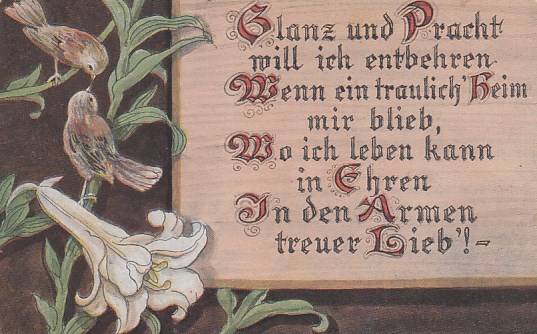 Glanz und Pracht
will ich entbehren
Wenn ein traulich' Heim
mir blieb,
Wo ich leben kann
in Ehren
In den Armen
treuer Lieb'! -